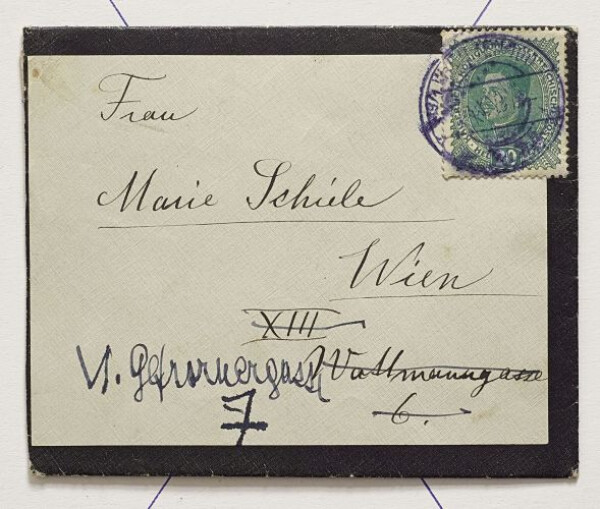 Frau
Marie Schiele
Wien
XIII
VI. Gfrornergasse Wattmanngasse
7 6.
20